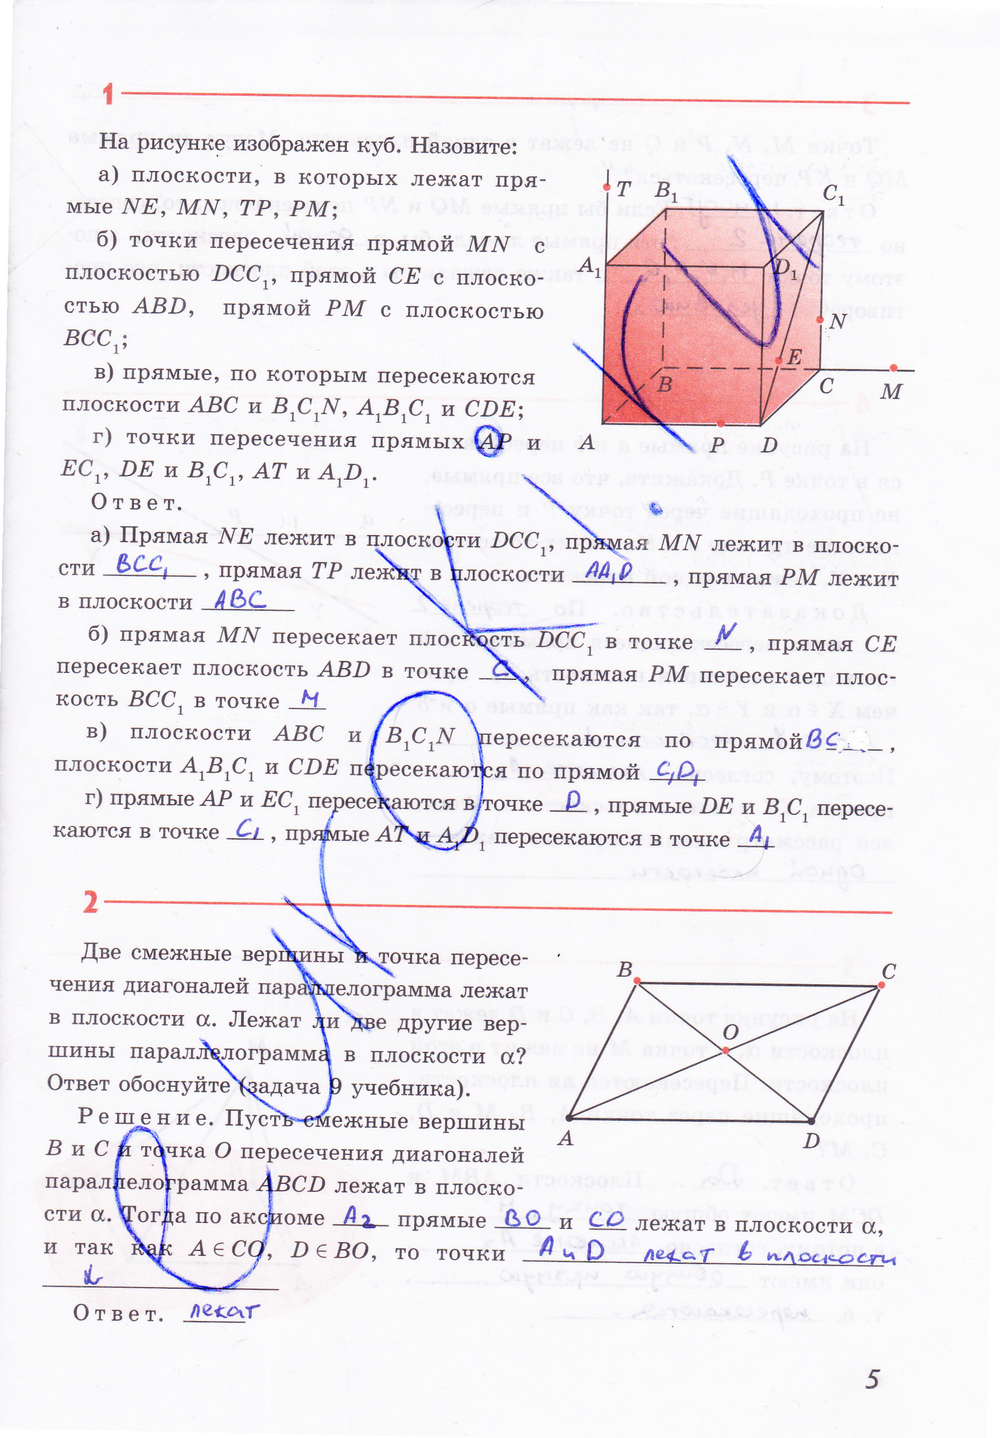 1
На рисунке изображен куб. Назовите:
а) плоскости, в которых лежат пря-
мые NE, MN, TP, PM;
б) точки пересечения прямой MN с
плоскостью DCC₁, прямой CE с плоско-
стью ABD, прямой PM с плоскостью
BCC₁;
в) прямые, по которым пересекаются
плоскости ABC и B₁C₁N, A₁B₁C₁ и CDE;
г) точки пересечения прямых AP и
EC₁, DE и B₁C₁, AT и A₁D₁.
T B₁ C₁
A₁ D₁
N
E
B C M
A P D
Ответ.
а) Прямая NE лежит в плоскости DCC₁, прямая MN лежит в плоско-
сти BCC₁, прямая TP лежит в плоскости AA₁D, прямая PM лежит
в плоскости ABC
б) прямая MN пересекает плоскость DCC₁ в точке N, прямая CE
пересекает плоскость ABD в точке C, прямая PM пересекает плос-
кость BCC₁ в точке M
в) плоскости ABC и B₁C₁N пересекаются по прямой BC,
плоскости A₁B₁C₁ и CDE пересекаются по прямой C₁D₁
г) прямые AP и EC₁ пересекаются в точке D, прямые DE и B₁C₁ пересе-
каются в точке C₁, прямые AT и A₁D₁ пересекаются в точке A₁
2
Две смежные вершины и точка пересе-
чения диагоналей параллелограмма лежат
в плоскости α. Лежат ли две другие вер-
шины параллелограмма в плоскости α?
Ответ обоснуйте (задача 9 учебника).
B C
O
A D
Решение. Пусть смежные вершины
B и C и точка O пересечения диагоналей
параллелограмма ABCD лежат в плоско-
сти α. Тогда по аксиоме A₂ прямые BO и CO лежат в плоскости α,
и так как A ∈ CO, D ∈ BO, то точки A и D лежат в плоскости
α
Ответ. лежат
5